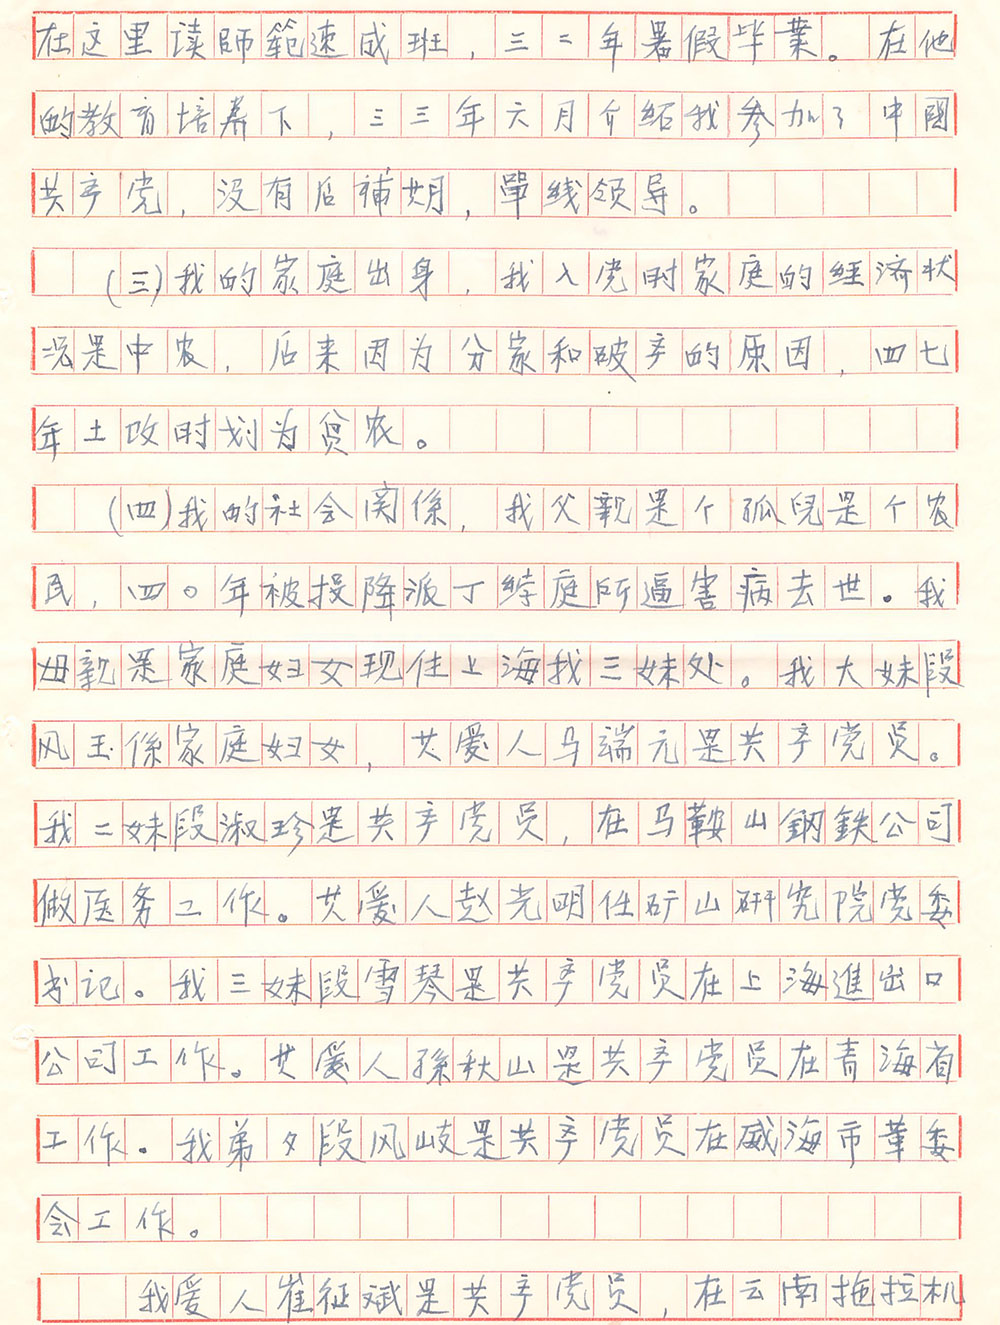 在这里读師範速成班，三二年暑假毕業。在他
的教育培养下，三三年六月介紹我参加了中國
共产党，没有后補期，單线领导。
(三)我的家庭出身，我入党时家庭的經济状
况是中农，后来因为分家和破产的原因，四七
年土改时划为贫农。
(四)我的社会関係，我父親是个孤兒是个农
民，四〇年被投降派丁綍庭所逼害病去世。我
母親是家庭妇女现住上海我三妹处。我大妹段
风玉係家庭妇女，其爱人马端元是共产党员。
我二妹段淑珍是共产党员，在马鞍山鋼鉄公司
做医务工作。其爱人赵光明任矿山研究院党委
书记。我三妹段雪琴是共产党员在上海進出口
公司工作。其爱人孫秋山是共产党员在青海省
工作。我弟夕段风岐是共产党员在威海市革委
会工作。
我爱人崔征斌是共产党员，在云南拖拉机